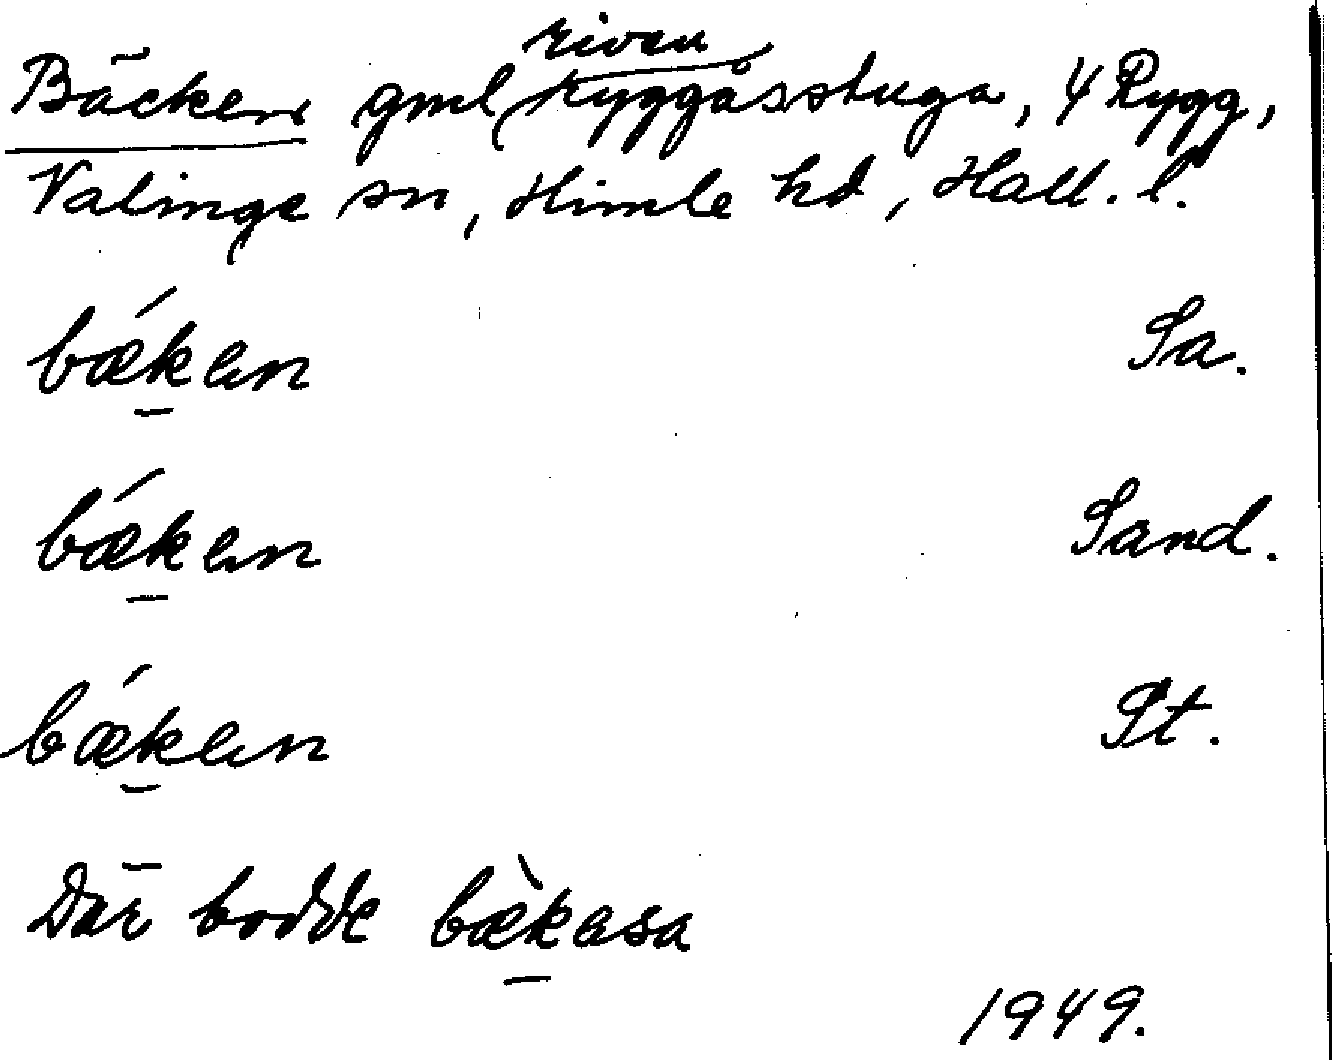 Bäcken gml riven ryggåsstuga, 4 Rygg,
Valinge sn, Himle hd, Hall. l.
bǽk̲ɐn Sa.
bǽk̲ɐn Sand.
bǽk̲ɐn St.
Där bodde bæ̀k̲ɐsa
1949.